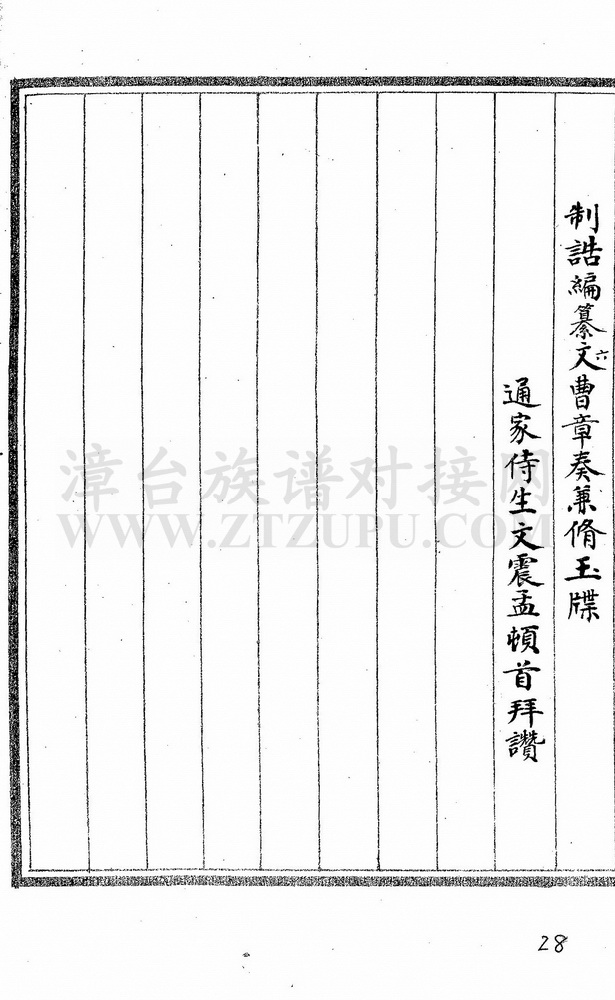 制誥編纂文六曹章奏兼脩玉牒
通家侍生文震孟頓首拜讚
漳台族谱对接网
WWW.ZTZUPU.COM
28